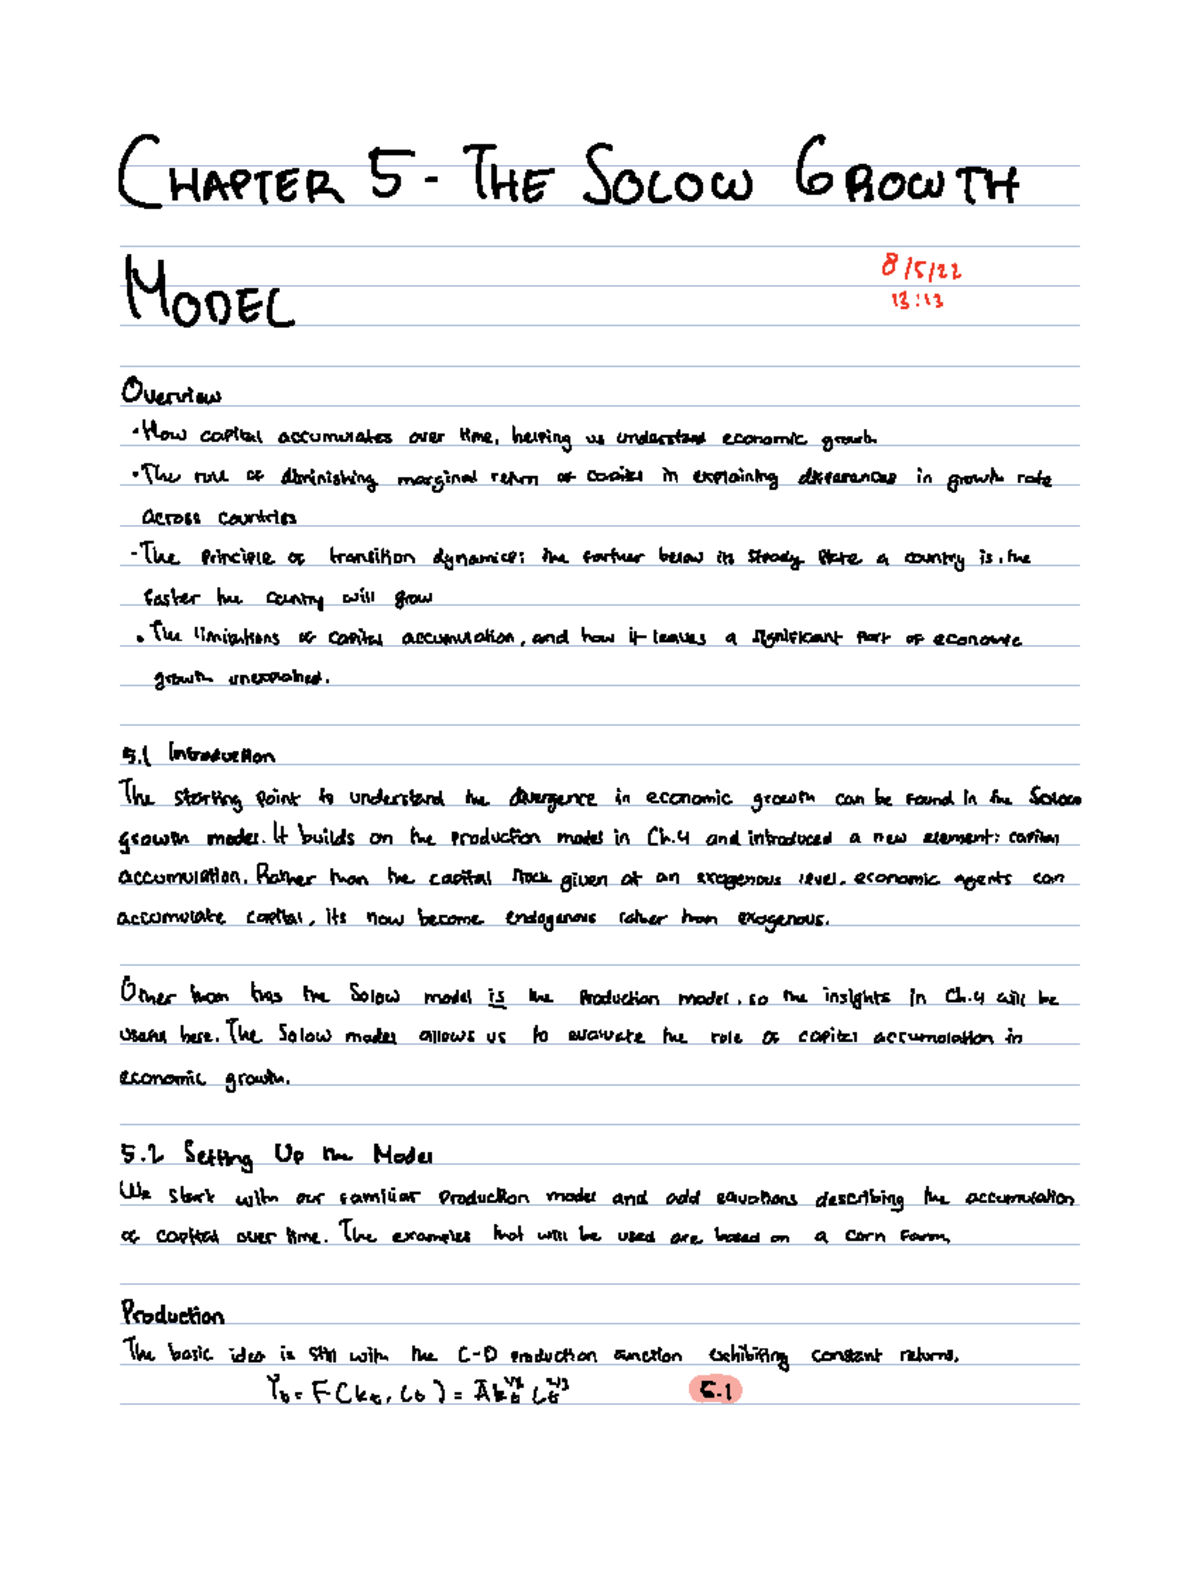 CHAPTER 5 - THE SOLOW GROWTH
MODEL
8/5/22
13:13
Overview
• How capital accumulates over time, helping us understand economic growth.
• The role of diminishing marginal return of capital in explaining differences in growth rate
across countries
- The principle of transition dynamics: the farther below its steady state a country is, the
faster the country will grow
• The limitations of capital accumulation, and how it leaves a significant part of economic
growth unexplained.
5.1 Introduction
The starting point to understand the divergence in economic growth can be found in the Solow
growth model. It builds on the production model in Ch.4 and introduced a new element: capital
accumulation. Rather than the capital stock given at an exogenous level, economic agents can
accumulate capital, its now become endogenous rather than exogenous.
Other than this the Solow model is the production model, so the insights in Ch.4 will be
useful here. The Solow model allows us to evaluate the role of capital accumulation in
economic growth.
5.2 Setting Up the Model
We start with our familiar production model and add equations describing the accumulation
of capital over time. The examples that will be used are based on a corn farm.
Production
The basic idea is still with the C-D production function exhibiting constant returns.
Yₜ = F(Kₜ, Lₜ) = ĀKₜ^1/3 Lₜ^2/3 5.1